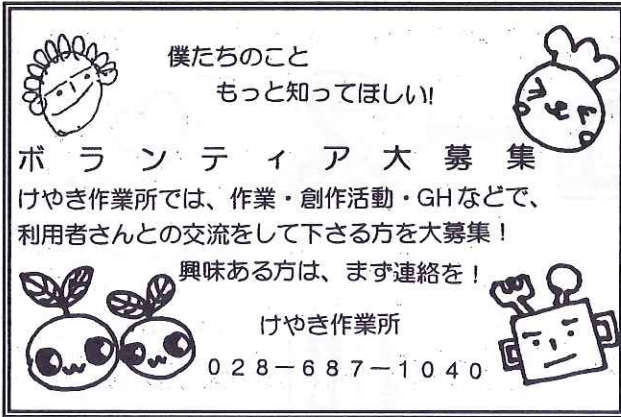 僕たちのこと
もっと知ってほしい!
ボランティア大募集
けやき作業所では、作業・創作活動・GHなどで、
利用者さんとの交流をして下さる方を大募集!
興味ある方は、まず連絡を!
けやき作業所
028-687-1040